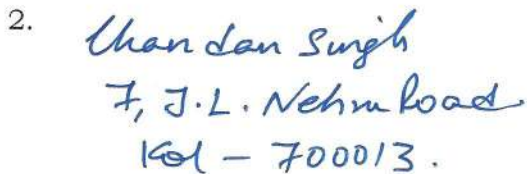 2. Chandan Singh
7, J.L. Nehru Road
Kol - 700013.